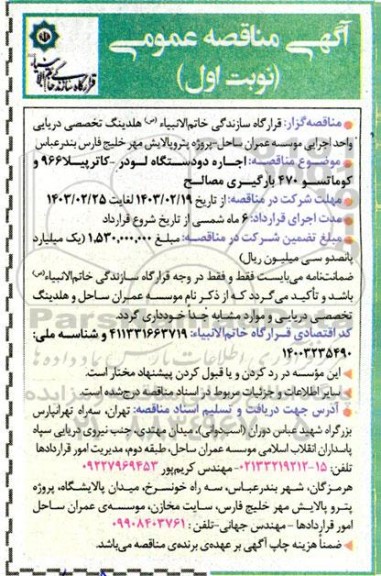 آگهی مناقصه عمومی
(نوبت اول)
قرارگاه سازندگی خاتم الانبیاء
مناقصه‌گزار: قرارگاه سازندگی خاتم‌الانبیاء (ص) هلدینگ تخصصی دریایی
واحد اجرایی موسسه عمران ساحل-پروژه پتروپالایش مهر خلیج فارس بندرعباس
موضوع مناقصه: اجاره دودستگاه لودر -کاترپیلا۹۶۶ و
کوماتسو ۴۷۰ بارگیری مصالح
مهلت شرکت در مناقصه: از تاریخ ۱۴۰۳/۰۲/۱۹ لغایت ۱۴۰۳/۰۲/۲۵
مدت اجرای قرارداد: ۶ ماه شمسی از تاریخ شروع قرارداد
مبلغ تضمین شرکت در مناقصه: مبلغ ۱,۵۳۰,۰۰۰,۰۰۰ (یک میلیارد
پانصدو سی میلیون ریال)
ضمانت‌نامه می‌بایست فقط و فقط در وجه قرارگاه سازندگی خاتم‌الانبیاء (ص)
باشد و تأکید می‌گردد که از ذکر نام موسسه عمران ساحل و هلدینگ
تخصصی دریایی و موارد مشابه جداً خودداری گردد.
کد اقتصادی قرارگاه خاتم‌الانبیاء: ۴۱۱۳۳۱۶۶۳۷۱۹ و شناسه ملی:
۱۴۰۰۳۲۳۵۴۹۰
این مؤسسه در رد کردن و یا قبول کردن پیشنهاد مختار است.
سایر اطلاعات و جزئیات مربوط در اسناد مناقصه درج شده است.
آدرس جهت دریافت و تسلیم اسناد مناقصه: تهران، سه‌راه تهرانپارس
بزرگراه شهید عباس دوران (استخدوانی)، میدان مهتدی، جنب نیروی دریایی سپاه
پاسداران انقلاب اسلامی موسسه عمران ساحل، طبقه دوم، مدیریت امور قراردادها
تلفن: ۱۵-۰۲۱۳۳۲۱۹۲۱۲-مهندس کریم‌پور ۰۹۲۲۷۹۶۹۴۵۳
هرمزگان، شهر بندرعباس، سه راه خونسرخ، میدان پالایشگاه، پروژه
پترو پالایش مهر خلیج فارس، سایت مخازن، موسسه‌ی عمران ساحل
امور قراردادها - مهندس جهانی-تلفن: ۰۹۹۰۸۴۰۳۷۶۱
ضمناً هزینه چاپ آگهی بر عهده‌ی برنده‌ی مناقصه می‌باشد.